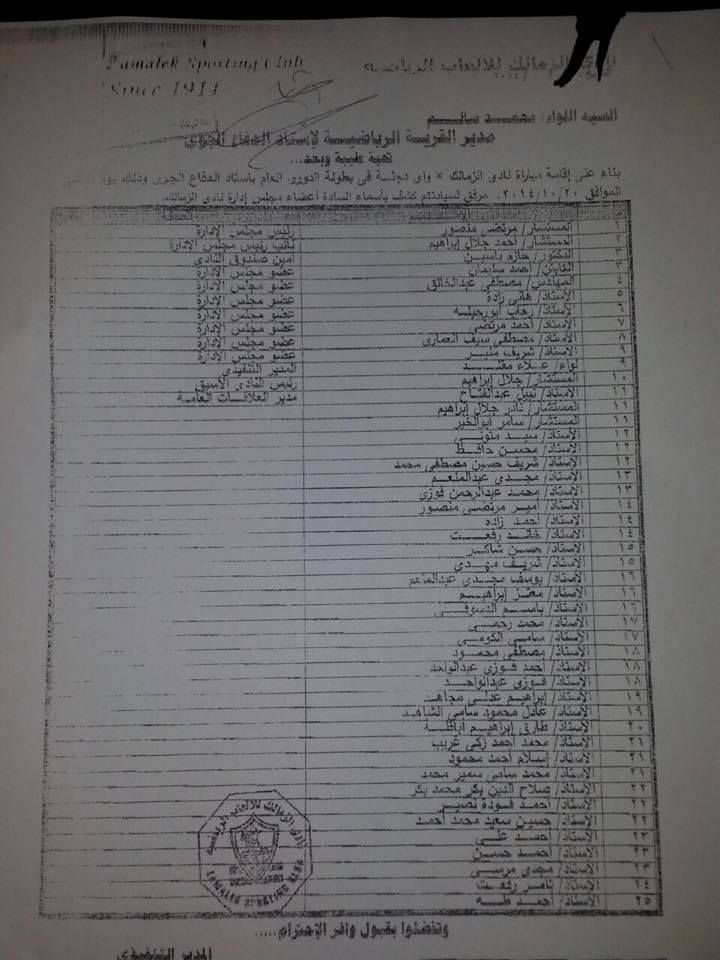 Zamalek Sporting Club
Since 1911
نادي الزمالك للألعاب الرياضية
السيد اللواء/ محمد سالم
مدير القرية الرياضية لإستاد الدفاع الجوى
تحية طيبة وبعد...
بناء على إقامة مباراة نادى الزمالك × وادى دجلة فى بطولة الدورى العام بإستاد الدفاع الجوى وذلك يوم
الموافق ٢٠١٤/١٠/٢٠. مرفق لسيادتكم كشف بأسماء السادة أعضاء مجلس إدارة نادى الزمالك.
١ المستشار/ مرتضى منصور رئيس مجلس الإدارة
٢ المستشار/ أحمد جلال إبراهيم نائب رئيس مجلس الادارة
٣ الدكتور/ حازم ياسين أمين صندوق النادى
٣ الكابتن/ أحمد سليمان عضو مجلس الإدارة
٤ المهندس/ مصطفى عبدالخالق عضو مجلس الإدارة
٥ الأستاذ/ هانى زادة عضو مجلس الإدارة
٦ الأستاذ/ رحاب أبورجيله عضو مجلس الإدارة
٧ الأستاذ/ أحمد مرتضى عضو مجلس الإدارة
٨ الأستاذ/ مصطفى سيف العمارى عضو مجلس الإدارة
٩ الأستاذ/ شريف منير عضو مجلس الإدارة
٩ لواء/ علاء مقلد المدير التنفيذى
١٠ المستشار/ جلال إبراهيم رئيس النادى الأسبق
١١ الأستاذ/ نبيل عبدالفتاح مدير العلاقات العامة
١١ المستشار/ نادر جلال إبراهيم
١١ المستشار/ سامر أبوالخير
١٢ الأستاذ/ سيد متولى
١٢ الأستاذ/ محسن حافظ
١٢ الأستاذ/ شريف حسين مصطفى محمد
١٣ الأستاذ/ مجدى عبدالمنعم
١٣ الأستاذ/ محمد عبدالرحمن فوزى
١٤ الأستاذ/ أمير مرتضى منصور
١٤ الأستاذ/ أحمد زاده
١٤ الأستاذ/ خالد رفعت
١٥ الأستاذ/ حسن شاكر
١٥ الأستاذ/ شريف مهدى
١٦ الأستاذ/ يوسف مجدى عبدالمنعم
١٦ الأستاذ/ معتز إبراهيم
١٦ الأستاذ/ باسم الدسوقى
١٧ الأستاذ/ محمد رحمى
١٧ الأستاذ/ سامى الكومى
١٨ الأستاذ/ مصطفى محمود
١٨ الأستاذ/ أحمد فوزى عبدالواحد
١٨ الأستاذ/ فوزى عبدالواحد
١٩ الأستاذ/ إبراهيم عدلى مجاهد
١٩ الأستاذ/ عادل محمود سامى الشاهد
٢٠ الأستاذ/ طارق إبراهيم أباظة
٢١ الأستاذ/ محمد أحمد زكى غريب
٢١ الأستاذ/ إسلام أحمد محمود
٢١ الأستاذ/ محمد سامى سمير محمد
٢٢ الأستاذ/ صلاح الدين بكر محمد بكر
٢٢ الأستاذ/ أحمد فودة نصير
٢٢ الأستاذ/ حسين سعيد محمد أحمد
٢٣ الأستاذ/ أحمد على
٢٣ الأستاذ/ أحمد حسن
٢٣ الأستاذ/ مجدى مرسى
٢٤ الأستاذ/ تامر رفعت
٢٥ الأستاذ/ أحمد طه
نادى الزمالك للألعاب الرياضية
ZAMALEK SPORTING CLUB
وتفضلوا بقبول وافر الإحترام.....
المدير التنفيذى